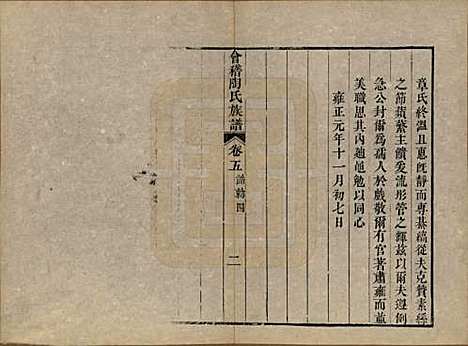 章氏終溫且惠旣靜而專綦縞從夫克贊素絲
之節蘋蘩主饋爰流彤管之輝茲以爾夫遵例
急公封爾為孺人於戲敬爾有官著肅雍而並
美職思其內迪黽勉以同心
雍正元年十一月初七日
會稽陶氏族譜
卷五 誥勅四
二